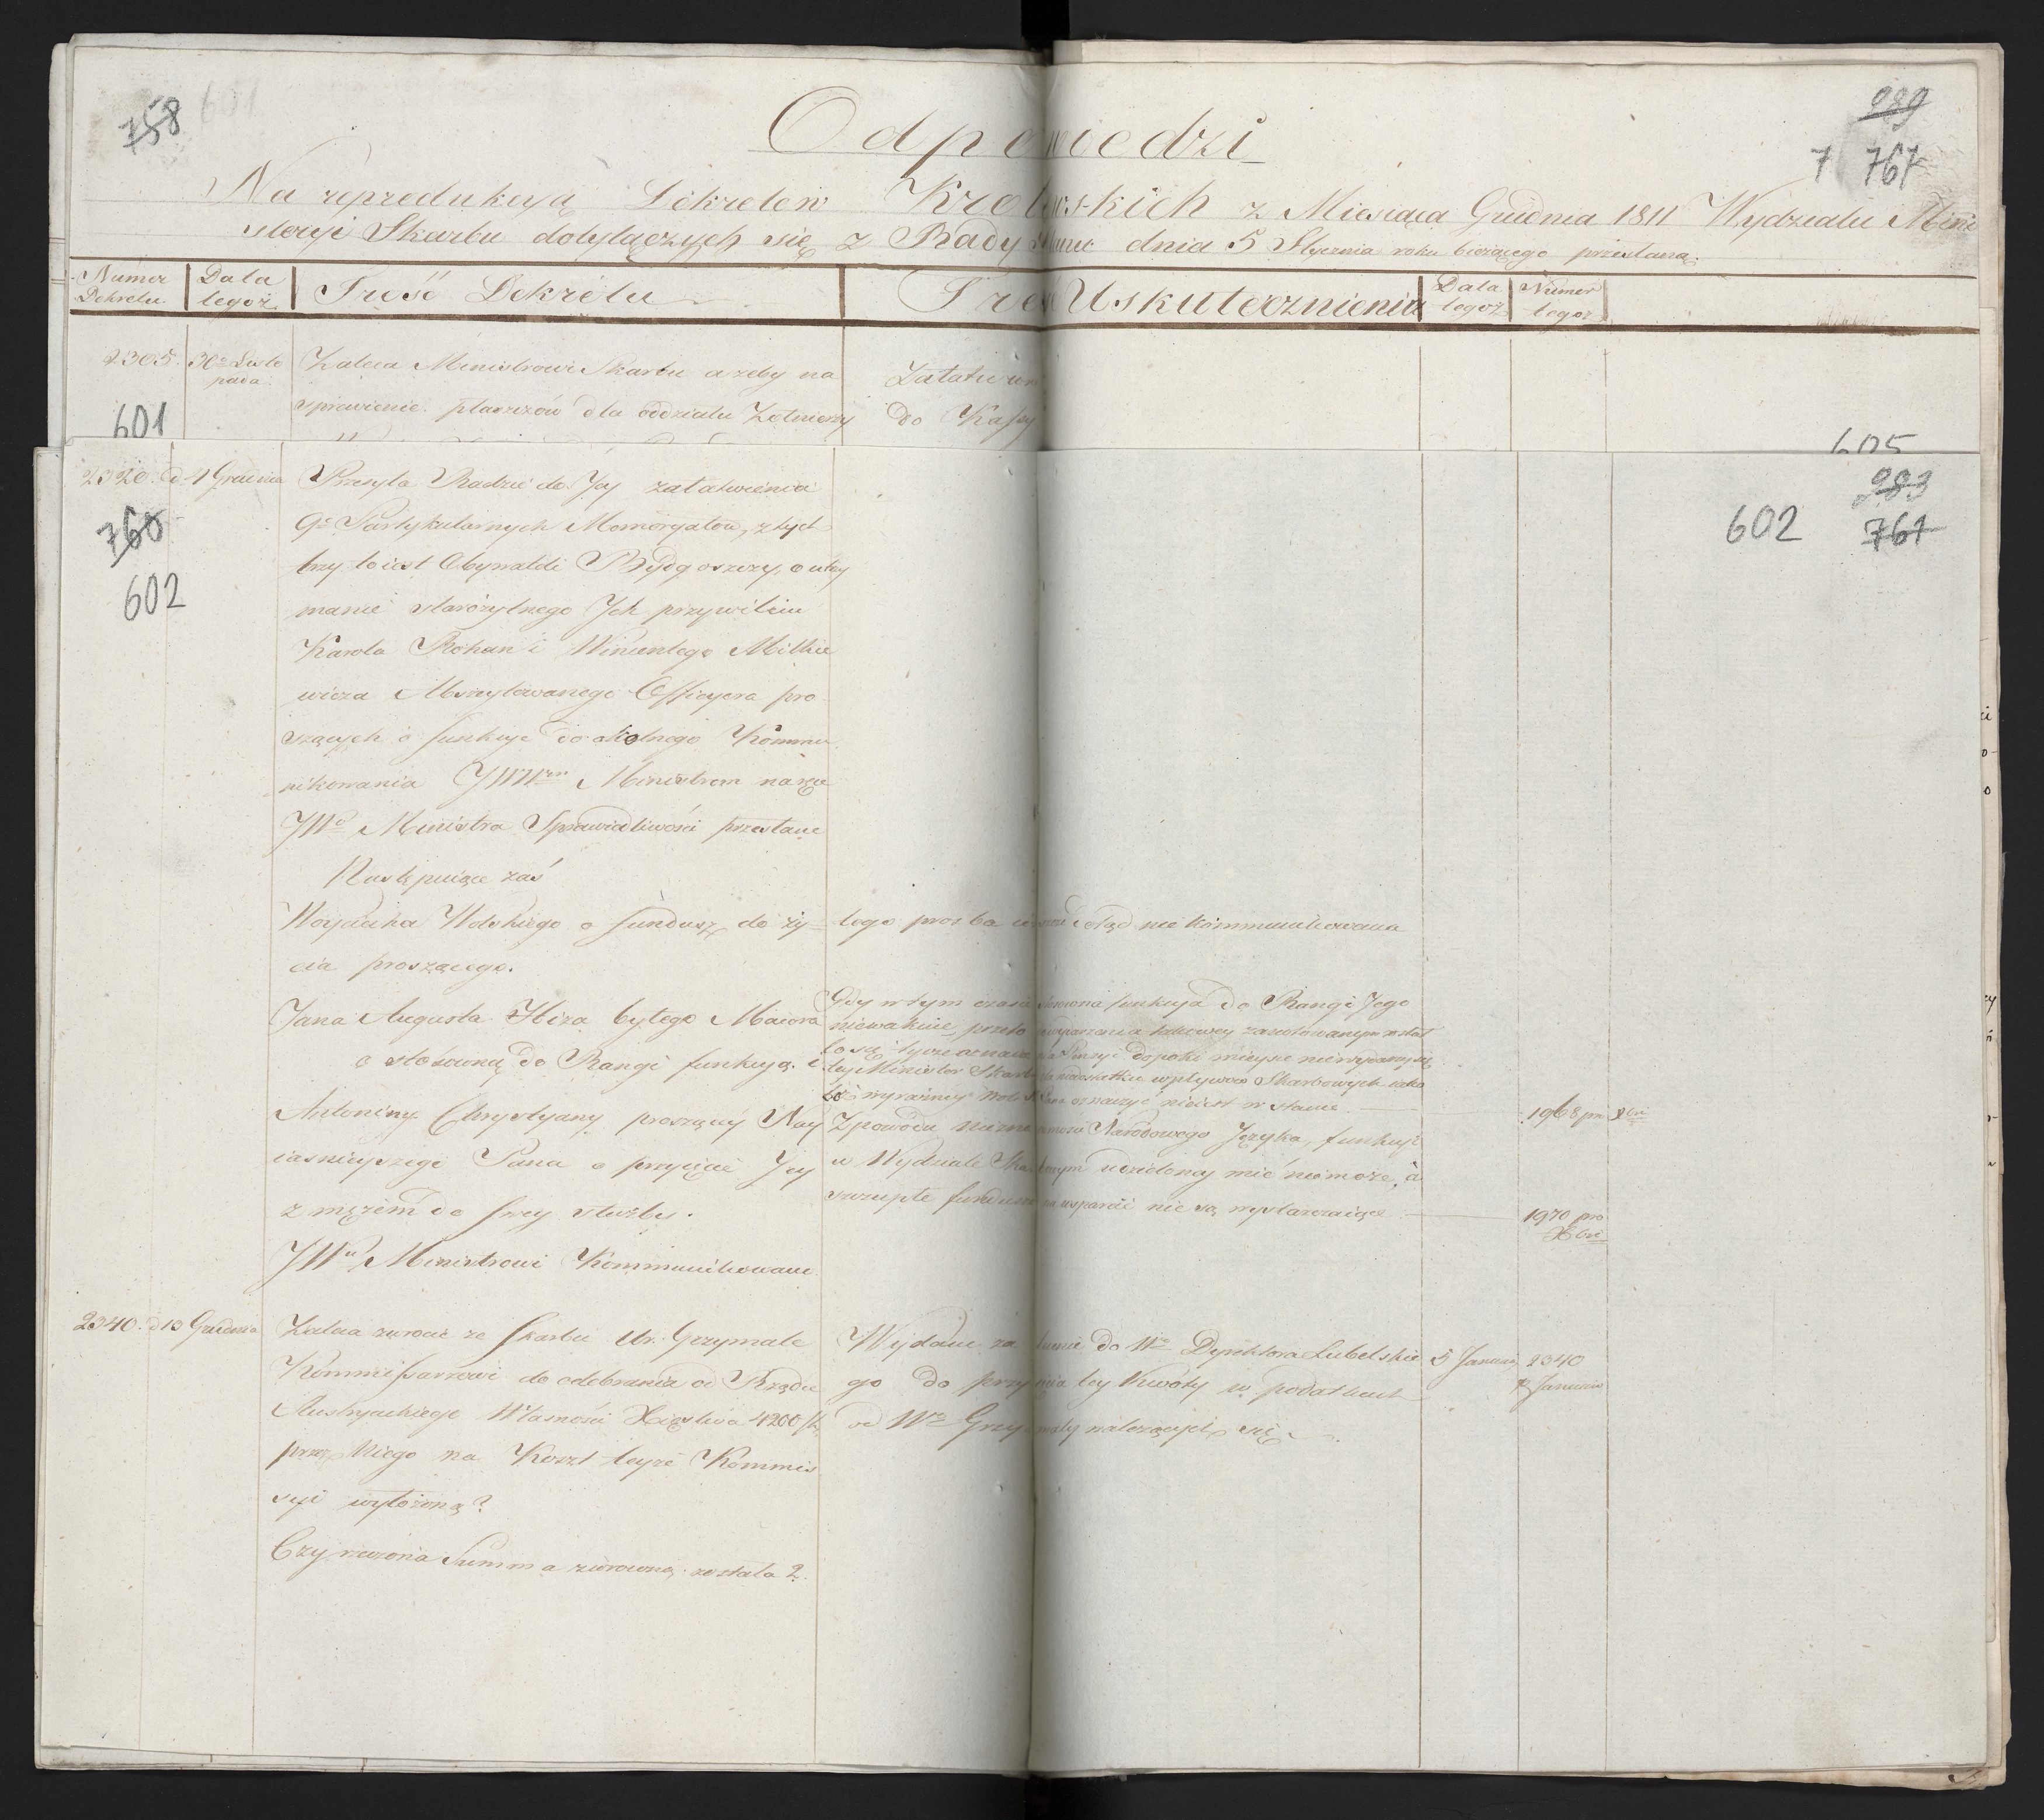 758
601
989
7 767
Odpowiedzi
Na reprodukcyą Dekretów Królewskich z Miesiąca Grudnia 1811 Wydziału Mini
steryi Skarbu dotyczących się z Rady Stanu dnia 5 Stycznia roku bieżącego przesłaną.
Numer Dekretu
Data tegoż
Treść Dekretu
Treść Uskutecznienia
Data tegoż
Numer tegoż
2305. 30 Listo
pada
Zaleca Ministrowi Skarbu ażeby na
sprawienie płaszczów dla oddziału Żołnierzy
do Kassy
601
605
2320. d. 4 Grudnia
Przesyła Radzie do Jey załatwienia
9 Partykularnych Memoryałów, z tych
trzy to iest Obywateli Bydgoszczy, o utrzy
manie starożytnego Ich przywileiu
Karola Rohan i Wincentego Mitkie
wicza Abszytowanego Officyera pro
szących o funkcye do
nikowania JWW Ministrom na ręce
JWo Ministra Sprawiedliwości przesłane
Następuiące zaś
760
602
602
983
761
Woyciecha Wolskiego o fundusz do ży
cia proszącego.
tego prośba dotąd nie kommunikowana
Jana Augusta Hiza byłego Maiora
o stosowną do Rangi funkcyą i
Gdy w tym czasie stosowna funkcya do Rangi Jego
niewakuie, przeto
dopóki mieysce
tey Minister Skarbu dla niedostatku wpływów Skarbowych
bez wyraźney Woli oznaczyć nieiest w stanie.
1968 pro Xbri
Antoniny Chrystyany proszącey Nay
iaśnieyszego Pana o przyięcie Jey
z mężem do swey służby.
JWu Ministrowi Kommunikowane
Z powodu nieznaiomości Narodowego Języka, funkcyi
w Wydziale Skarbowym udzieloney mieć niemoże, a
szczupłe fundusze na wsparcie nie są wystarczaiące
1970 pro
Xbri
2340. d 10 Grudnia
Zaleca zwrócić ze Skarbu Ur. Grzymale
Kommissarzowi do odebrania od Rządu
Austryackiego Własności Xięstwa 4200
przez Niego na Koszt teyże Kommis
syi wyłożoną?
Czy rzeczona Summa zwróconą została?
Wydane do Wo Dyrektora Lubelskie
go do przyięcia tey Kwoty w podatkach
od Wo Grzymały należących się
5 January
2340
January